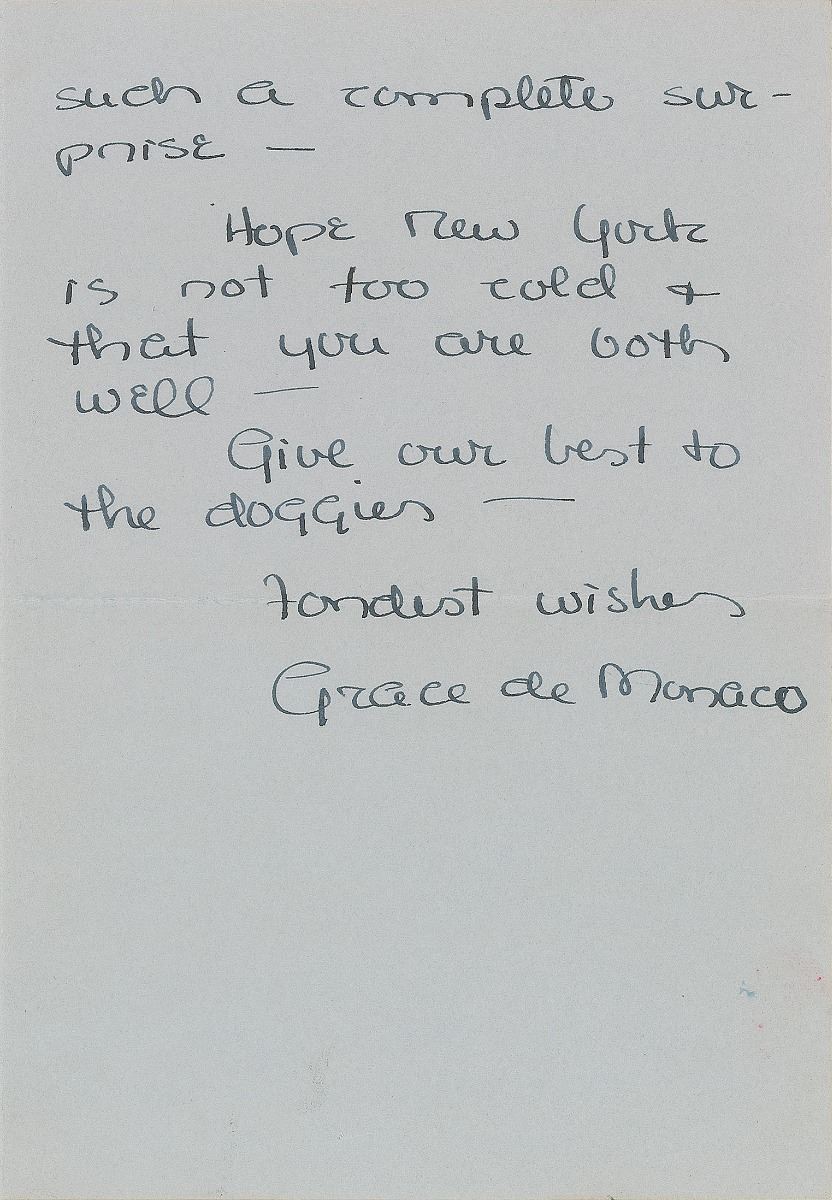 such a complete sur-
prise —
Hope New York
is not too cold &
that you are both
well —
Give our best to
the doggies —
Fondest wishes
Grace de Monaco